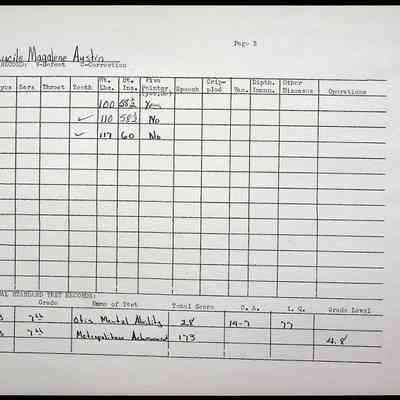 Page 3
Lucile Magalene Austin
RECORD: V-Defect C-Correction
Ears Throat Teeth Wt. Lbs. Ht. Ins. Five Pointer (yes,no) Speech Crip- pled Vac. Dipth. Immun. Other Diseases Operations
100 58½ Yes
✓ 110 58½ No
✓ 117 60 No
STANDARD TEST RECORDS:
Grade Name of Test Total Score C. A. I. Q. Grade Level
7th Otis Mental Ability 28 14-7 77
7th Metropolitan Achievement 173 4.8